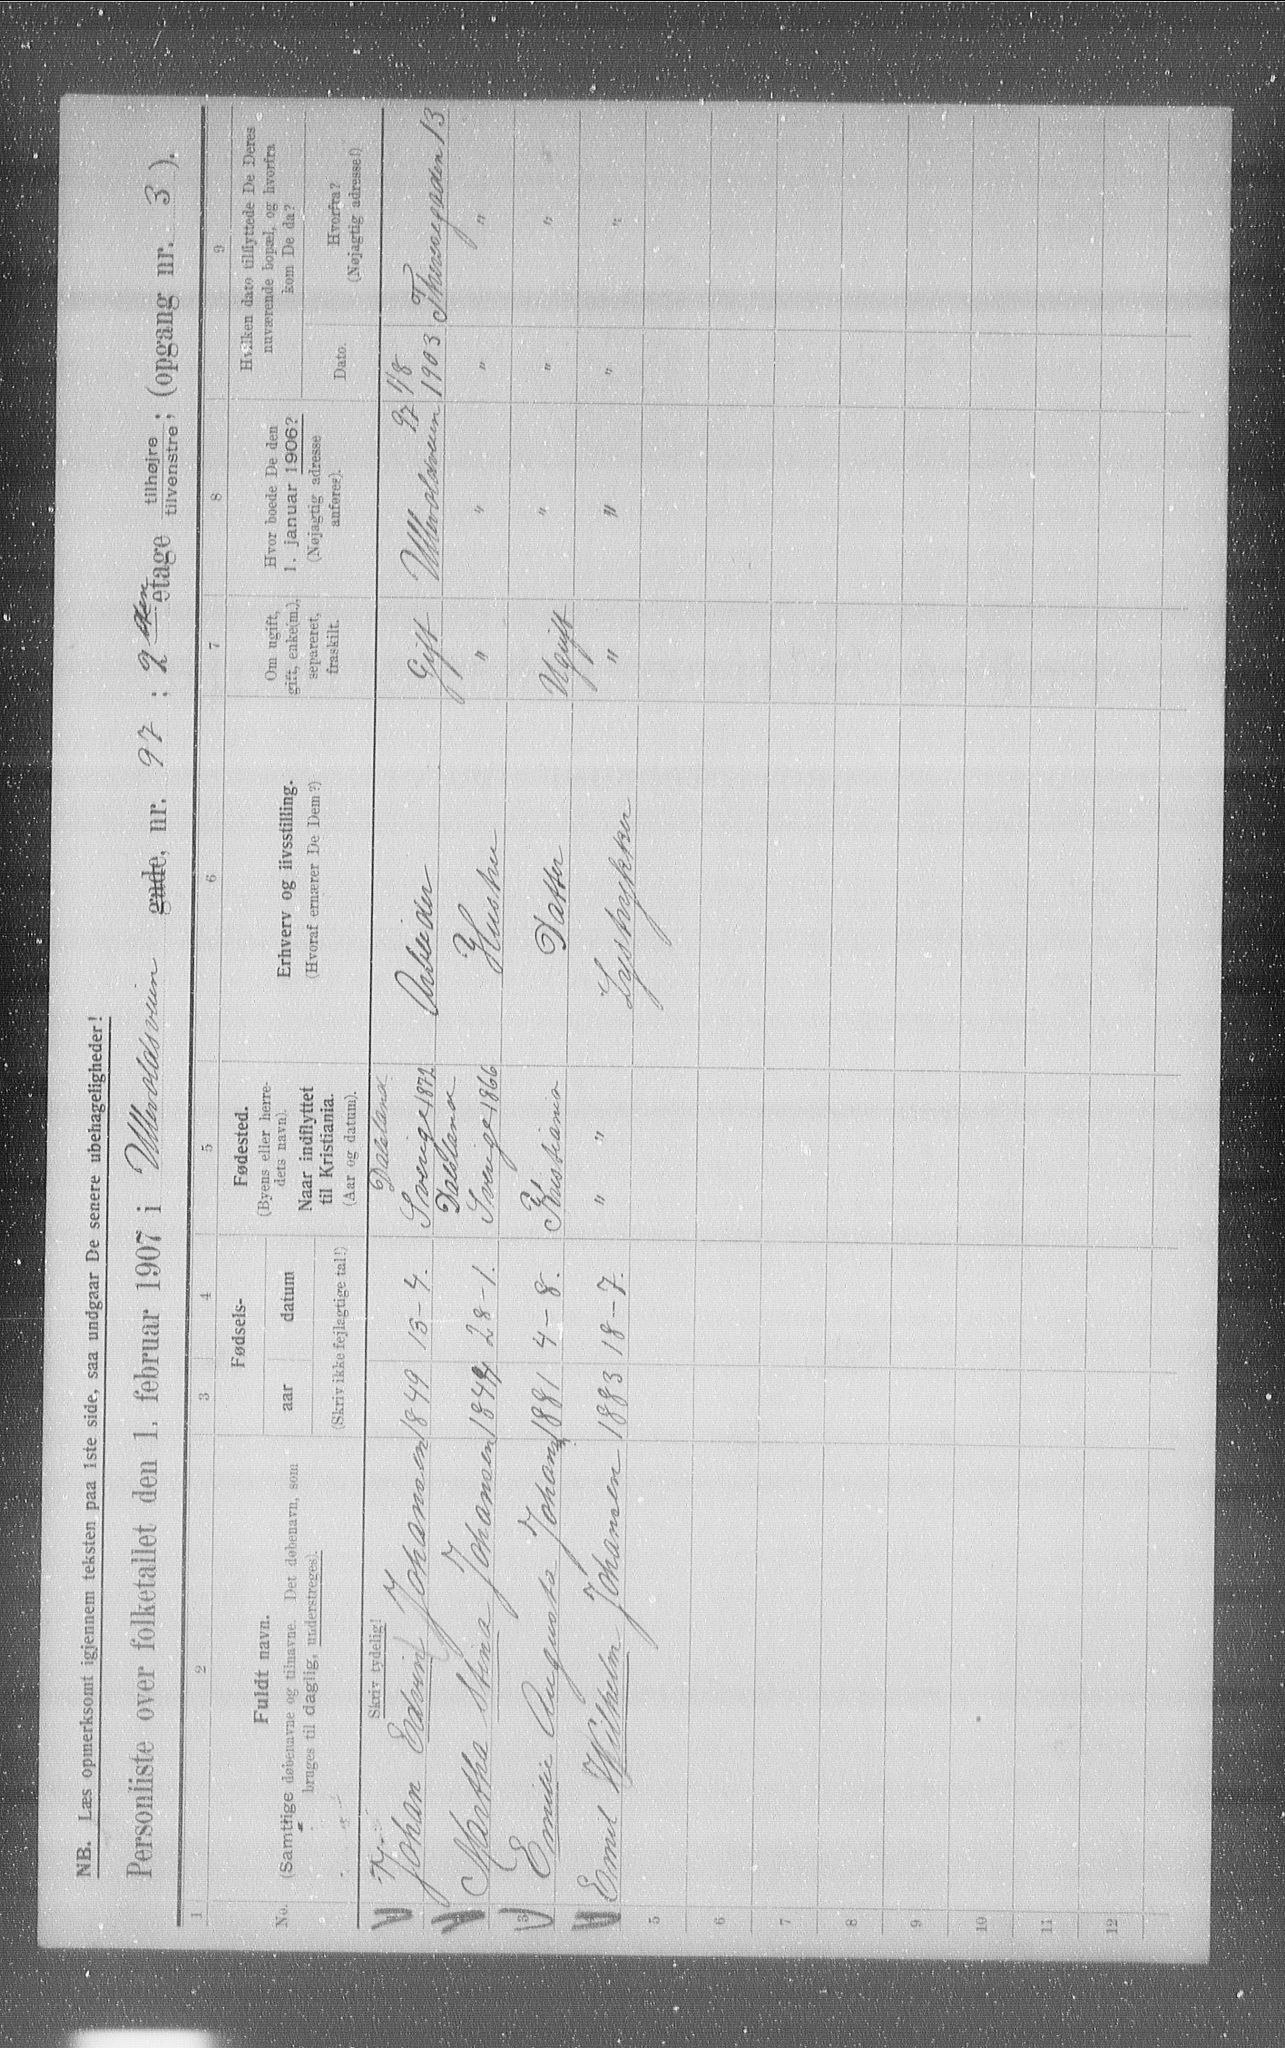 NB. Læs opmerksomt igjennem teksten paa 1ste side, saa undgaar De senere ubehageligheder!
Personliste over folketallet den 1. februar 1907 i Ullevoldsveien gade, nr. 97 ; 2 den etage tilhøjre tilvenstre ; (opgang nr. 3 ).
1 2 3 4 5 6 7 8 9
No.
Fuldt navn.
(Samtlige døbenavne og tilnavne. Det døbenavn, som
bruges til daglig, understreges).
Fødsels-
aar datum
(Skriv ikke fejlagtige tal!)
Fødested.
(Byens eller herre-
dets navn).
Naar indflyttet
til Kristiania.
(Aar og datum).
Erhverv og livsstilling.
(Hvoraf ernærer De Dem?)
Om ugift,
gift, enke(m.),
separeret,
fraskilt.
Hvor boede De den
1. januar 1906?
(Nøjagtig adresse
anføres).
Hvilken dato tilflyttede De Deres
nuværende bopæl, og hvorfra
kom De da?
Dato.
Hvorfra?
(Nøjagtig adresse!)
Skriv tydelig!
Johan Edvin Johansen 1849 15-4. Dalsland Sverige 1872 Arbeider Gift Ullevoldsveien 97 1/8 1903 13
Martha Stina Johansen 28-1. Dalsland Sverige 1866 Hustru " " " "
3 Emilie Augusta Johans 1881 4-8. Kristiania Datter Ugift " " "
Emil Wilhelm Johansen 1883 18-7. " " " " " "
5
6
7
8
9
10
11
12